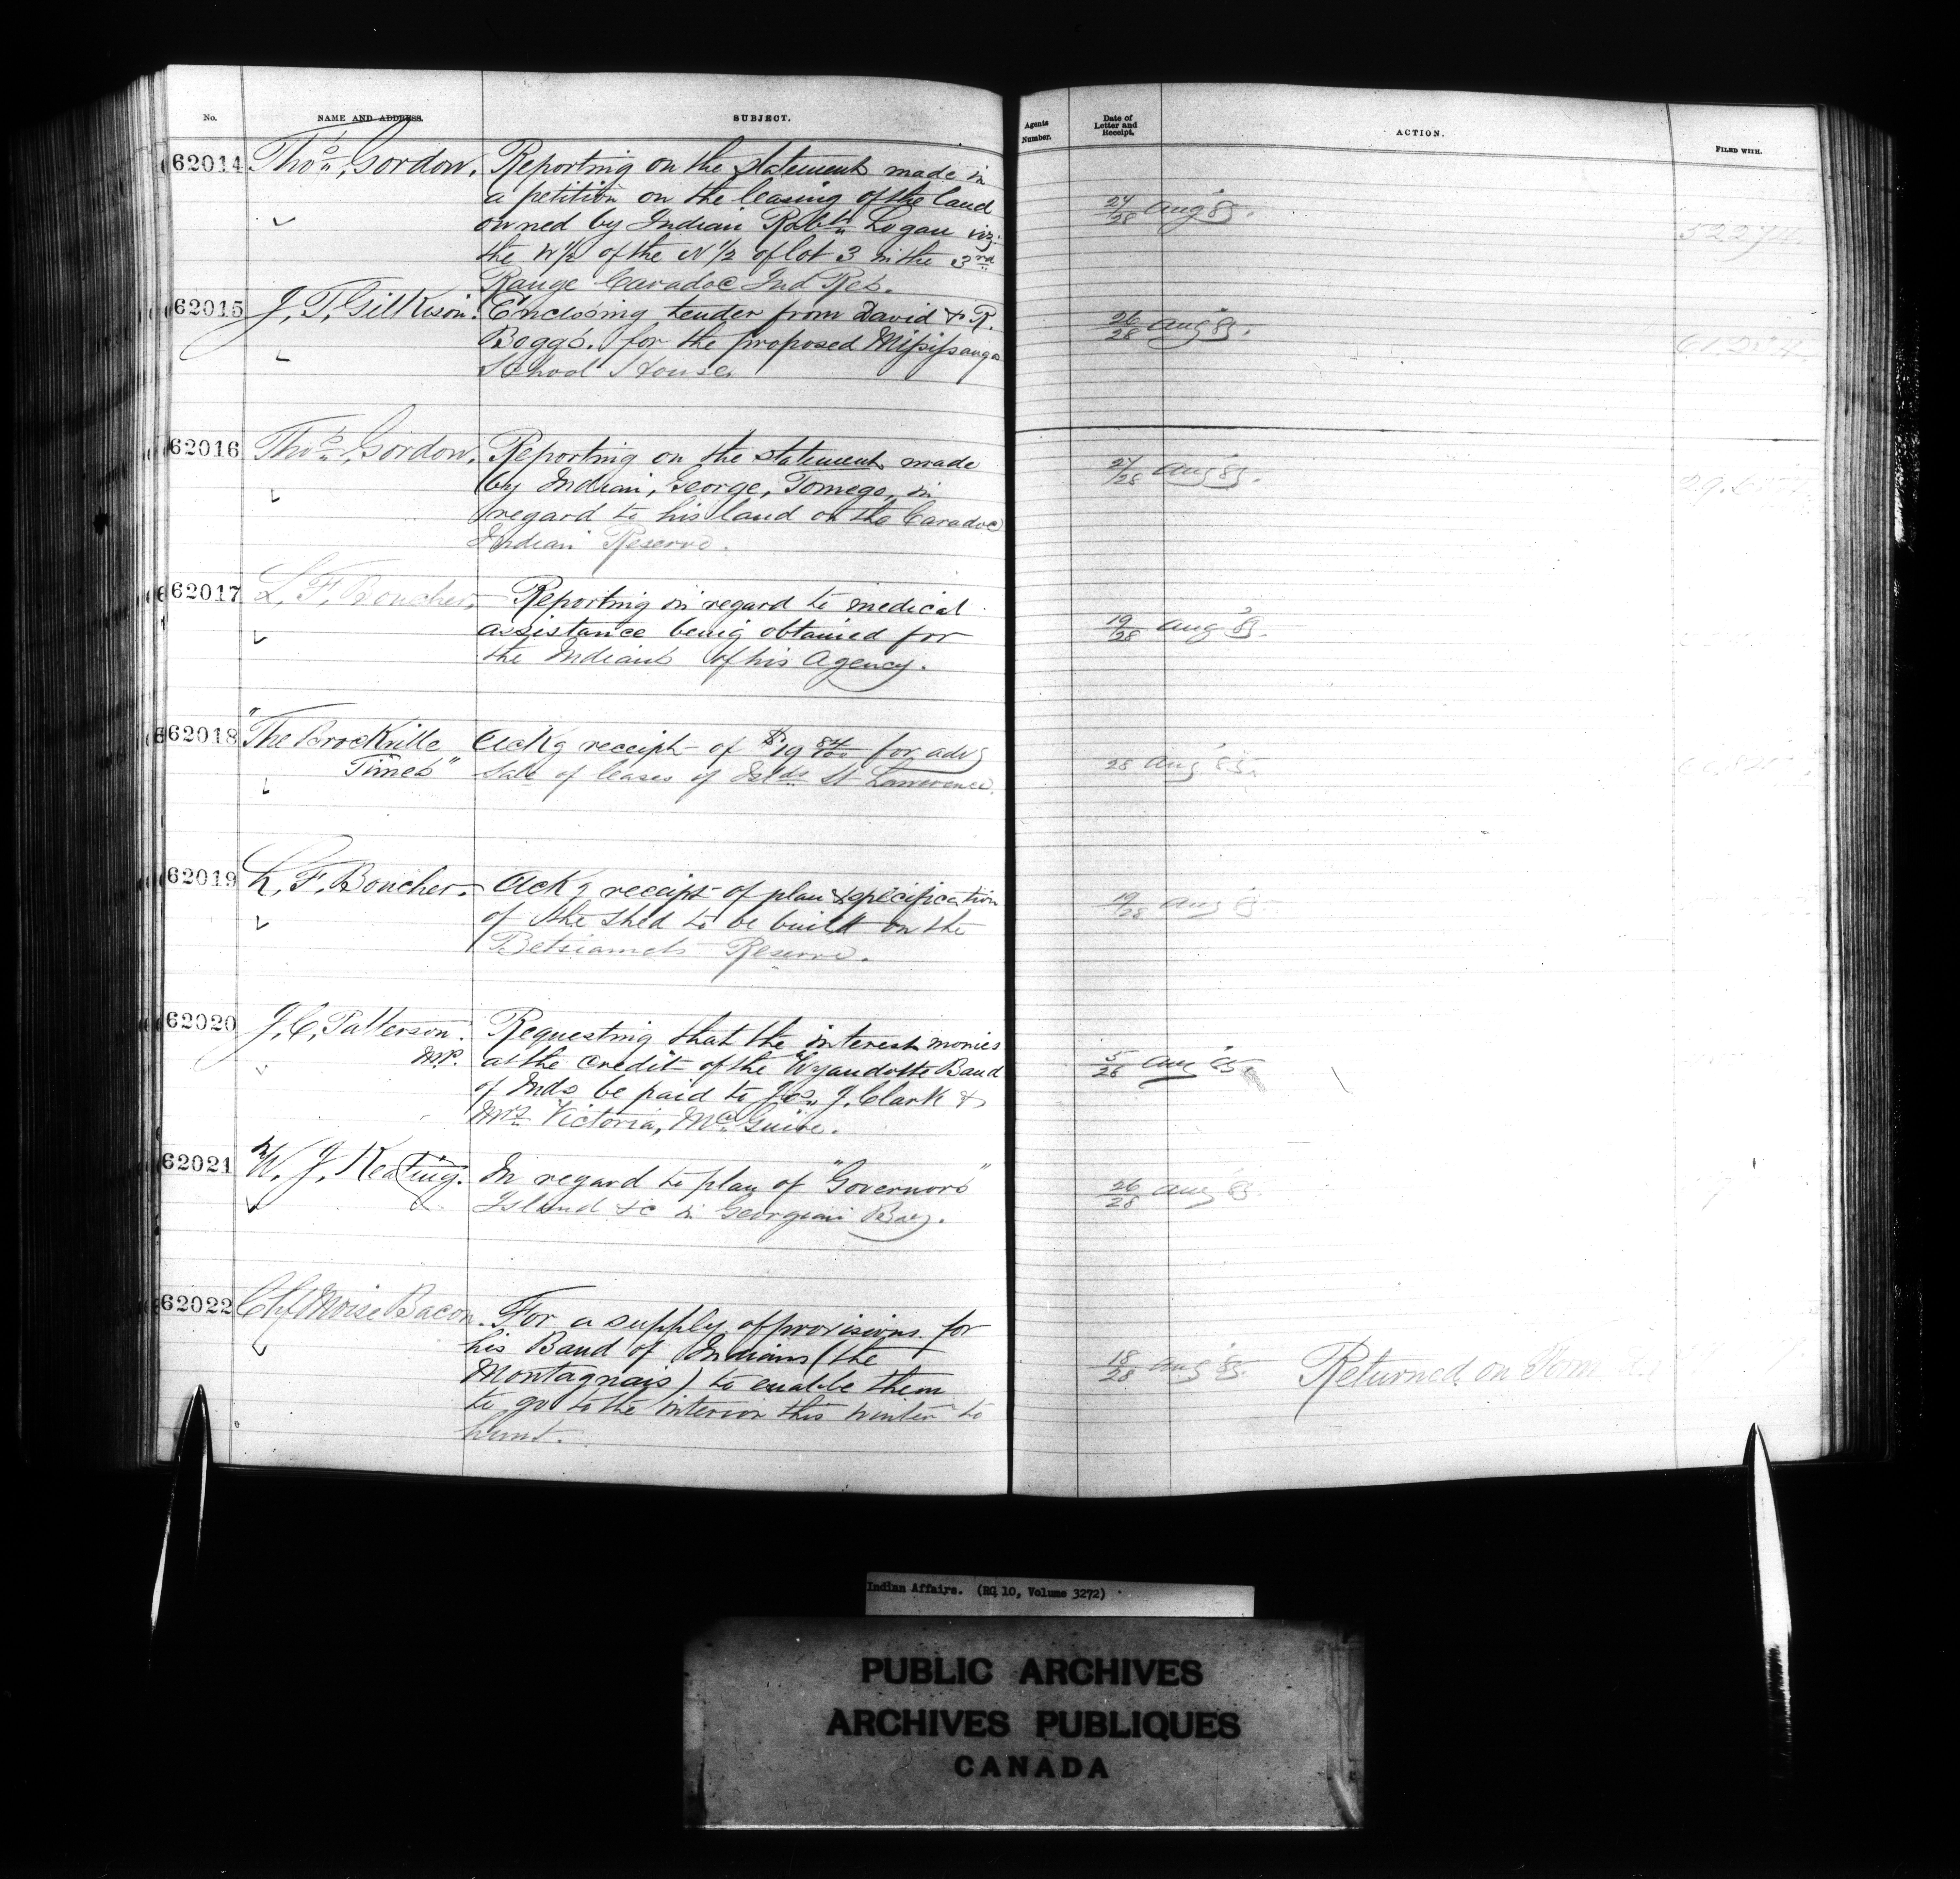 No. NAME AND ADDRESS. SUBJECT. Agents Number. Date of Letter and Receipt. ACTION. FILED WITH.
62014 Thos. Gordon. Reporting on the statement made in
a petition on the leasing of the land 27/28 Aug 85.
owned by Indian Robt. Logan viz: 52274.
the W ½ of the N ½ of lot 3 in the 3rd
Range Caradoc Ind Res.
62015 J. T. Gilkison. Enclosing tender from David & R. 26/28 Aug 85.
Boggs. for the proposed Missisauga
School House.
62016 Thos. Gordon. Reporting on the statement made 27/28 Aug 85.
by Indian, George, Tomego, in
regard to his land on the Caradoc
Indian Reserve.
62017 L. F. Boucher. Reporting in regard to medical
assistance being obtained for 19/28 Aug 85.
the Indians of his Agency.
62018 "The Brockville Ackg receipt of $19 84/100 for advg
Times" Sale of leases of Islds. St Lawrence. 28 Aug 85.
62019 L. F. Boucher. Ackg receipt of plan & specification 19/28 Aug 85.
of the shed to be built on the
Betsiamits Reserve.
62020 J. C. Patterson. Requesting that the interest monies
M.P. at the credit of the Wyandotte Band 5/28 Aug 85.
of Inds be paid to Jos. J. Clark &
Mrs. Victoria, McGuire.
62021 W. J. Keating. In regard to plan of "Governors" 26/28 Aug 85.
Island &c in Georgian Bay.
62022 Chf Moise Bacon. For a supply of provisions for
his Band of Indians (the 18/28 Aug 85. Returned on
Montagnais) to enable them
to go to the interior this winter to
hunt.
Indian Affairs. (RG 10, Volume 3272)
PUBLIC ARCHIVES
ARCHIVES PUBLIQUES
CANADA